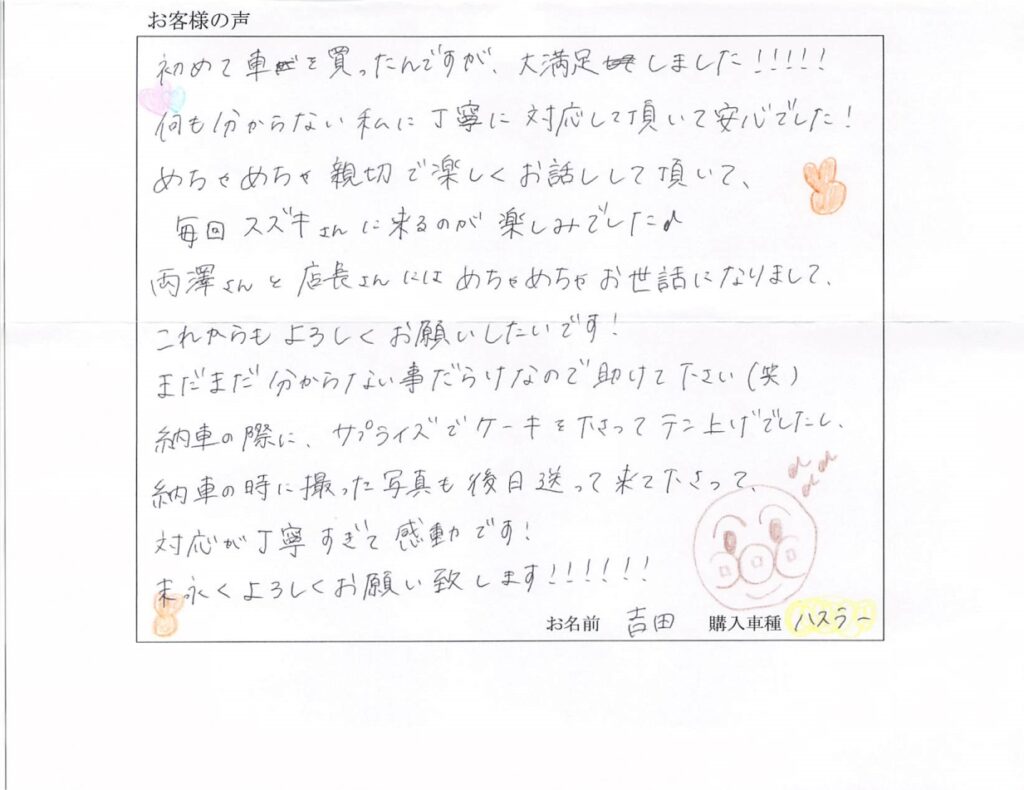 お客様の声
初めて車を買ったんですが、大満足しました!!!!!
何も分からない私に丁寧に対応して頂いて安心でした!
めちゃめちゃ親切で楽しくお話しして頂いて、
毎回スズキさんに来るのが楽しみでした♪
両澤さんと店長さんにはめちゃめちゃお世話になりまして、
これからもよろしくお願いしたいです!
まだまだ分からない事だらけなので助けて下さい(笑)
納車の際に、サプライズでケーキを下さってテン上げでしたし、
納車の時に撮った写真も後日送って来て下さって、
対応が丁寧すぎて感動です!
末永くよろしくお願い致します!!!!!!
お名前 吉田 購入車種 ハスラー